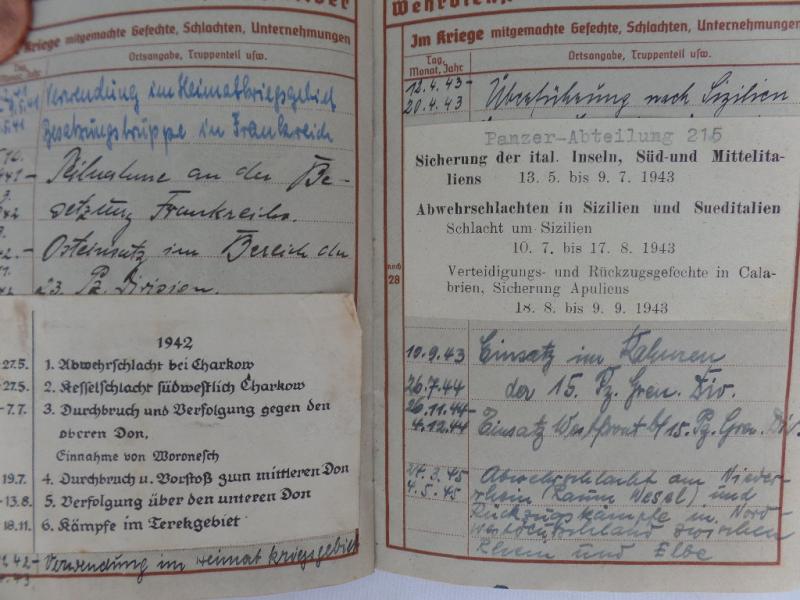 Im Kriege mitgemachte Gefechte, Schlachten, Unternehmungen
Ortsangabe, Truppenteil usw.
Monat, Jahr
Verwendung im Heimatkriegsgebiet
Besatzungstruppe in Frankreich
Teilnahme an der Be-
setzung Frankreichs.
Osteinsatz im Bereich der
23. Pz. Division.
1942
27.5. 1. Abwehrschlacht bei Charkow
27.5. 2. Kesselschlacht südwestlich Charkow
-7.7. 3. Durchbruch und Verfolgung gegen den
oberen Don,
Einnahme von Woronesch
19.7. 4. Durchbruch u. Vorstoß zum mittleren Don
-13.8. 5. Verfolgung über den unteren Don
18.11. 6. Kämpfe im Terekgebiet
Verwendung im Heimatkriegsgebiet
Im Kriege mitgemachte Gefechte, Schlachten, Unternehmungen
Tag, Monat, Jahr
Ortsangabe, Truppenteil usw.
12.4.43-
20.4.43 Überführung nach Sizilien
Panzer-Abteilung 215
Sicherung der ital. Inseln, Süd-und Mittelita-
liens 13. 5. bis 9. 7. 1943
Abwehrschlachten in Sizilien und Sueditalien
Schlacht um Sizilien
10. 7. bis 17. 8. 1943
noch
28
Verteidigungs- und Rückzugsgefechte in Cala-
brien, Sicherung Apuliens
18. 8. bis 9. 9. 1943
10.9.43 Einsatz im Rahmen
26.7.44 der 15. Pz. Gren. Div.
26.11.44-
4.12.44 Einsatz Westfront b/15. Pz. Gren. Div.
24.3.45 Abwehrschlacht am Nieder-
4.5.45 rhein (Raum Wesel) und
Rückzugskämpfe in Nord-
westdeutschland zwischen
Rhein und Elbe